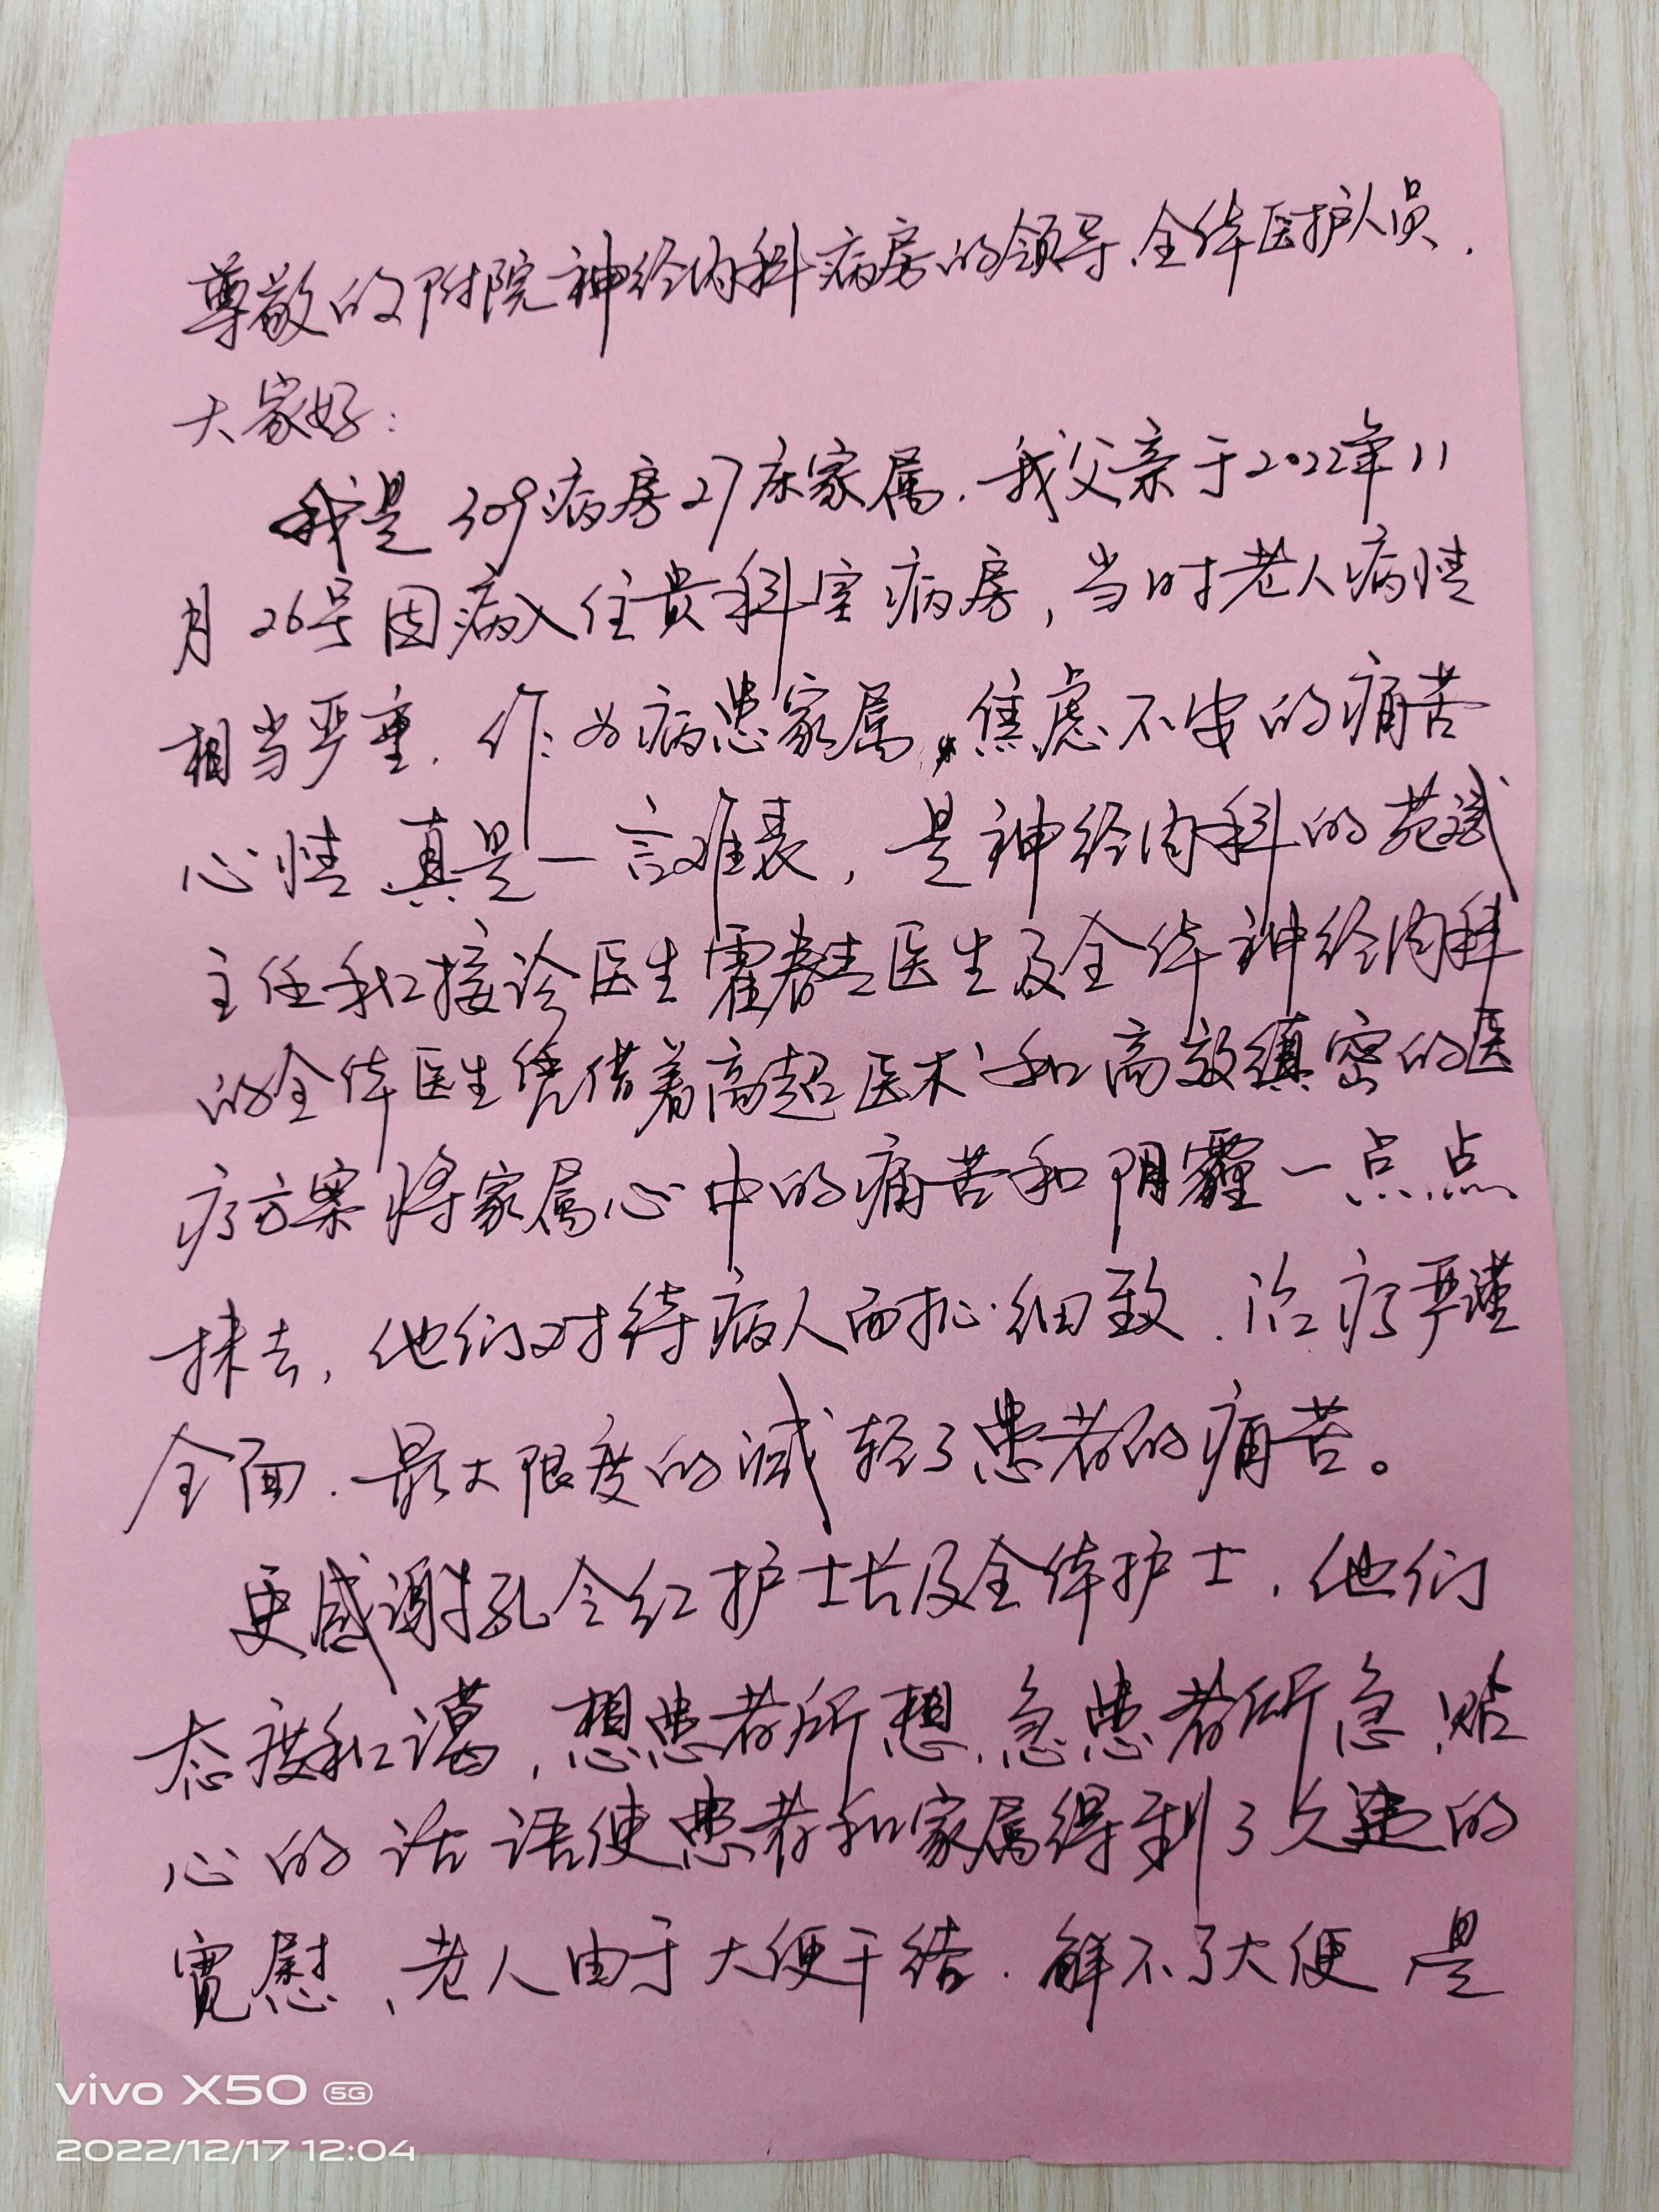 尊敬的附院神经内科病房的领导、全体医护人员，
大家好：
我是309病房27床家属，我父亲于2022年11
月26号因病入住贵科室病房，当时老人病情
相当严重，作为病患家属，焦虑不安的痛苦
心情真是一言难表，是神经内科的苑斌
主任和接诊医生霍春 医生及全体神经内科
的全体医生凭借着高超医术和高效缜密的医
疗方案将家属心中的痛苦和阴霾一点点
抹去，他们对待病人面 细致，治疗严谨
全面，最大限度的减轻了患者的痛苦。
更感谢孔令红护士长及全体护士，他们
态度和谒，想患者所想，急患者所急，贴
心的话语使患者和家属得到了久违的
宽慰，老人由于大便干结，解不了大便是
vivo X50 5G
2022/12/17 12:04